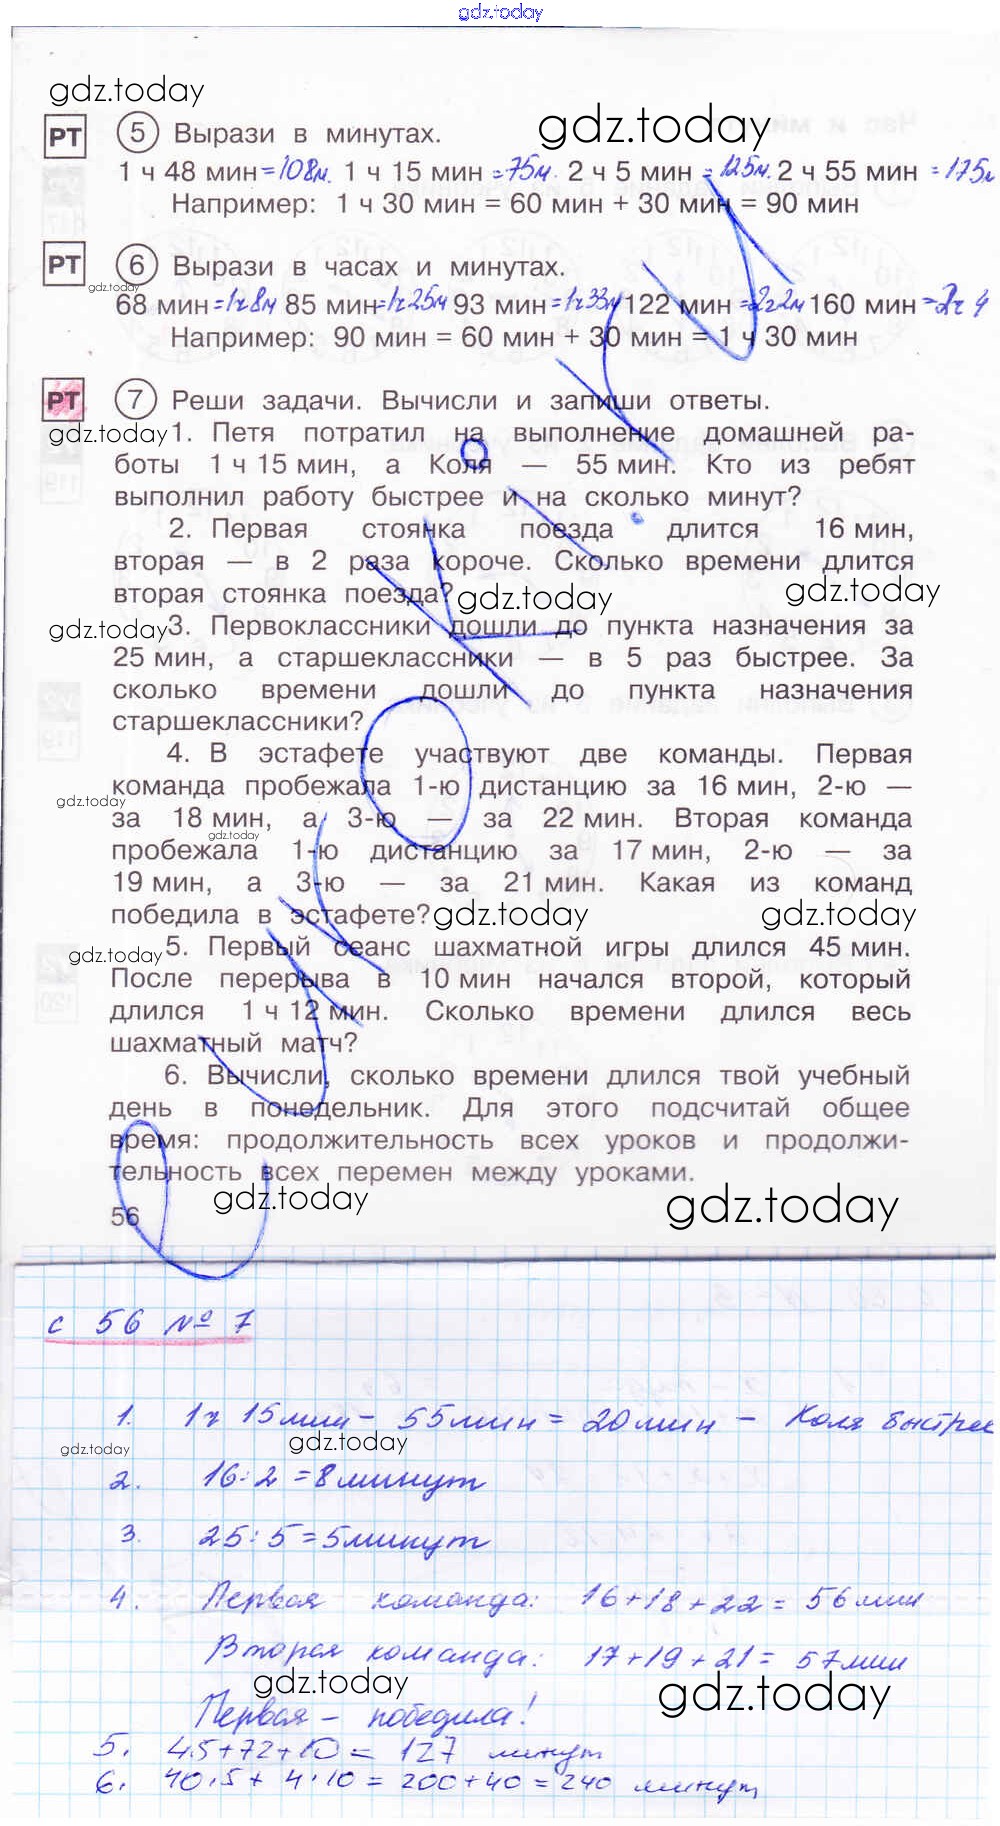 gdz.today
gdz.today
РТ 5 Вырази в минутах. gdz.today
1 ч 48 мин = 108м. 1 ч 15 мин = 75м. 2 ч 5 мин = 125м. 2 ч 55 мин = 175м
Например: 1 ч 30 мин = 60 мин + 30 мин = 90 мин
РТ 6 Вырази в часах и минутах.
gdz.today
68 мин = 1ч8м 85 мин = 1ч25м 93 мин = 1ч33м 122 мин = 2ч2м 160 мин = 2ч 4
Например: 90 мин = 60 мин + 30 мин = 1 ч 30 мин
РТ 7 Реши задачи. Вычисли и запиши ответы.
gdz.today 1. Петя потратил на выполнение домашней ра-
боты 1 ч 15 мин, а Коля — 55 мин. Кто из ребят
выполнил работу быстрее и на сколько минут?
2. Первая стоянка поезда длится 16 мин,
вторая — в 2 раза короче. Сколько времени длится
вторая стоянка поезда? gdz.today gdz.today
gdz.today 3. Первоклассники дошли до пункта назначения за
25 мин, а старшеклассники — в 5 раз быстрее. За
сколько времени дошли до пункта назначения
старшеклассники?
4. В эстафете участвуют две команды. Первая
команда пробежала 1-ю дистанцию за 16 мин, 2-ю —
gdz.today
за 18 мин, а 3-ю — за 22 мин. Вторая команда
gdz.today
пробежала 1-ю дистанцию за 17 мин, 2-ю — за
19 мин, а 3-ю — за 21 мин. Какая из команд
победила в эстафете? gdz.today gdz.today
gdz.today 5. Первый сеанс шахматной игры длился 45 мин.
После перерыва в 10 мин начался второй, который
длился 1 ч 12 мин. Сколько времени длился весь
шахматный матч?
6. Вычисли, сколько времени длился твой учебный
день в понедельник. Для этого подсчитай общее
время: продолжительность всех уроков и продолжи-
тельность всех перемен между уроками.
gdz.today gdz.today
56
с 56 № 7
1. 1ч 15мин - 55мин = 20мин - Коля быстрее
gdz.today gdz.today
2. 16:2 = 8минут
3. 25:5 = 5минут
4. Первая команда: 16+18+22 = 56мин
Вторая команда: 17+19+21 = 57мин
gdz.today gdz.today
Первая - победила!
5. 45+72+10 = 127 минут
6. 40·5+ 4·10 = 200+40 = 240 минут